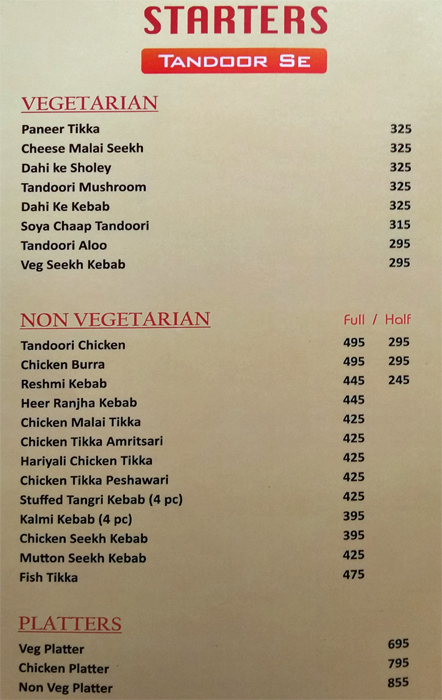 STARTERS
TANDOOR SE
VEGETARIAN
Paneer Tikka 325
Cheese Malai Seekh 325
Dahi ke Sholey 325
Tandoori Mushroom 325
Dahi Ke Kebab 325
Soya Chaap Tandoori 315
Tandoori Aloo 295
Veg Seekh Kebab 295
NON VEGETARIAN Full / Half
Tandoori Chicken 495 295
Chicken Burra 495 295
Reshmi Kebab 445 245
Heer Ranjha Kebab 445
Chicken Malai Tikka 425
Chicken Tikka Amritsari 425
Hariyali Chicken Tikka 425
Chicken Tikka Peshawari 425
Stuffed Tangri Kebab (4 pc) 425
Kalmi Kebab (4 pc) 395
Chicken Seekh Kebab 395
Mutton Seekh Kebab 425
Fish Tikka 475
PLATTERS
Veg Platter 695
Chicken Platter 795
Non Veg Platter 855